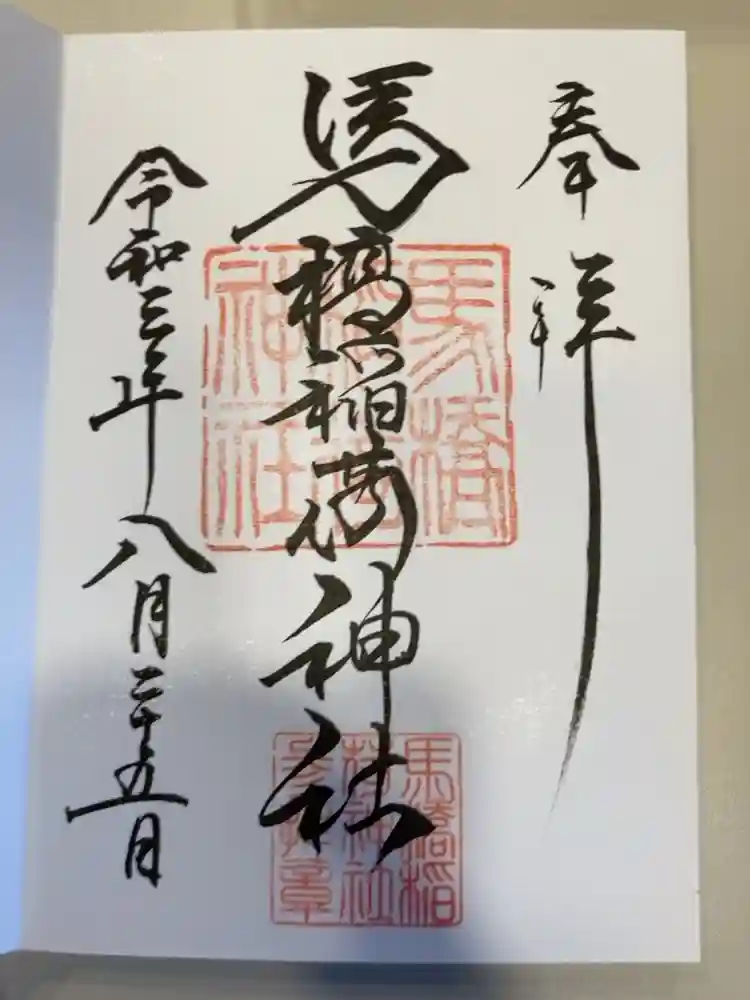 奉拝
馬橋稲荷神社
令和三年八月二十五日
馬橋
稲荷
神社
馬橋稲
荷神社
参拝章